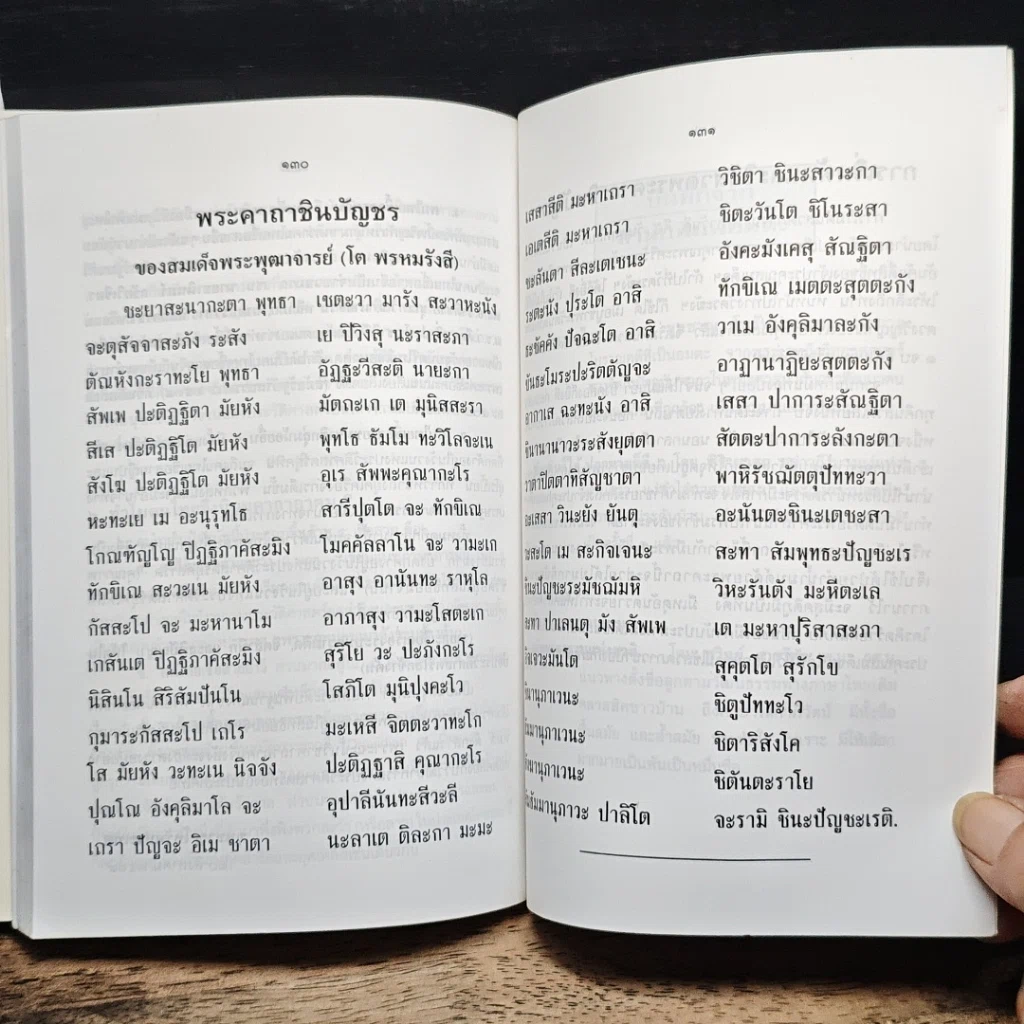 ๑๓๐
พระคาถาชินบัญชร
ของสมเด็จพระพุฒาจารย์ (โต พรหมรังสี)
ชะยาสะนากะตา พุทธา เชตะวา มารัง สะวาหะนัง
จะตุสัจจาสะภัง ระสัง เย ปิวิงสุ นะราสะภา
ตัณหังกะราทะโย พุทธา อัฏฐะวีสะติ นายะกา
สัพเพ ปะติฏฐิตา มัยหัง มัตถะเก เต มุนิสสะรา
สีเส ปะติฏฐิโต มัยหัง พุทโธ ธัมโม ทะวิโลจะเน
สังโฆ ปะติฏฐิโต มัยหัง อุเร สัพพะคุณากะโร
หะทะเย เม อะนุรุทโธ สารีปุตโต จะ ทักขิเณ
โกณฑัญโญ ปิฏฐิภาคัสะมิง โมคคัลลาโน จะ วามะเก
ทักขิเณ สะวะเน มัยหัง อาสุง อานันทะ ราหุโล
กัสสะโป จะ มะหานาโม อาภาสุง วามะโสตะเก
เกสันเต ปิฏฐิภาคัสะมิง สุริโย วะ ปะภังกะโร
นิสินโน สิริสัมปันโน โสภิโต มุนิปุงคะโว
กุมาระกัสสะโป เถโร มะเหสี จิตตะวาทะโก
โส มัยหัง วะทะเน นิจจัง ปะติฏฐาสิ คุณากะโร
ปุณโณ อังคุลิมาโล จะ อุปาลีนันทะสีวะลี
เถรา ปัญจะ อิเม ชาตา นะลาเต ติละกา มะมะ
๑๓๑
เสสาสีติ มะหาเถรา วิชิตา ชินะสาวะกา
เอเตสีติ มะหาเถรา ชิตะวันโต ชิโนระสา
ชะลันตา สีละเตเชนะ อังคะมังเคสุ สัณฐิตา
ระตะนัง ปุระโต อาสิ ทักขิเณ เมตตะสุตตะกัง
ธะชัคคัง ปัจฉะโต อาสิ วาเม อังคุลิมาละกัง
ขันธะโมระปะริตตัญจะ อาฏานาฏิยะสุตตะกัง
อากาเส ฉะทะนัง อาสิ เสสา ปาการะสัณฐิตา
ชินานานาวะระสังยุตตา สัตตะปาการะลังกะตา
วาตาปิตตาทิสัญชาตา พาหิรัชฌัตตุปัททะวา
อะเสสา วินะยัง ยันตุ อะนันตะชินะเตชะสา
วะสะโต เม สะกิจเจนะ สะทา สัมพุทธะปัญชะเร
ชินะปัญชะระมัชฌัมหิ วิหะรันตัง มะหีตะเล
สะทา ปาเลนตุ มัง สัพเพ เต มะหาปุริสาสะภา
สุคุตโต สุรักโข
ชิตูปัททะโว
ชิตาริสังโค
ชิตันตะราโย
ปาลิโต จะรามิ ชินะปัญชะเรติ.